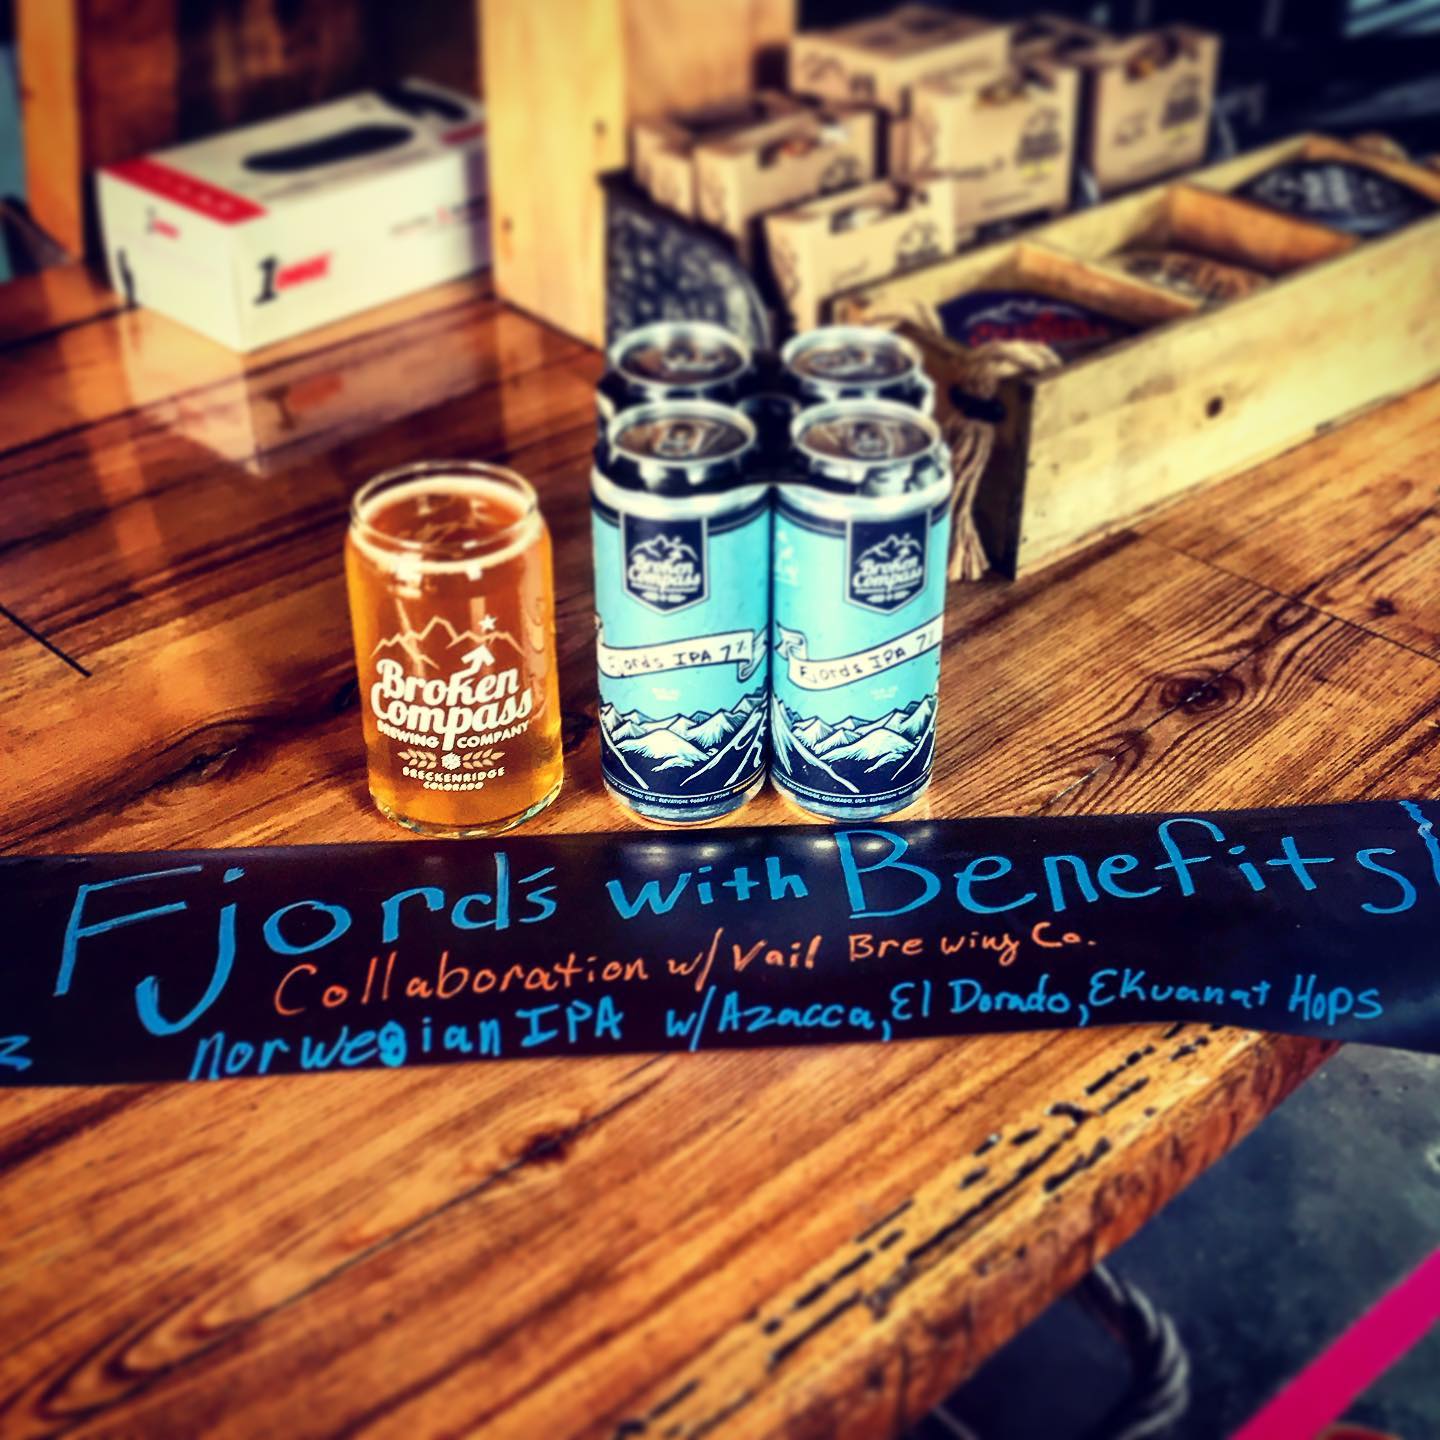 Broken
Compass
BREWING COMPANY
BRECKENRIDGE
COLORADO
Broken
Compass
Fjords IPA 7%
Broken
Compass
Fjords IPA 7%
Fjord's with Benefits
Collaboration w/ Vail Brewing Co.
Norwegian IPA w/ Azacca, El Dorado, Ekuanat Hops